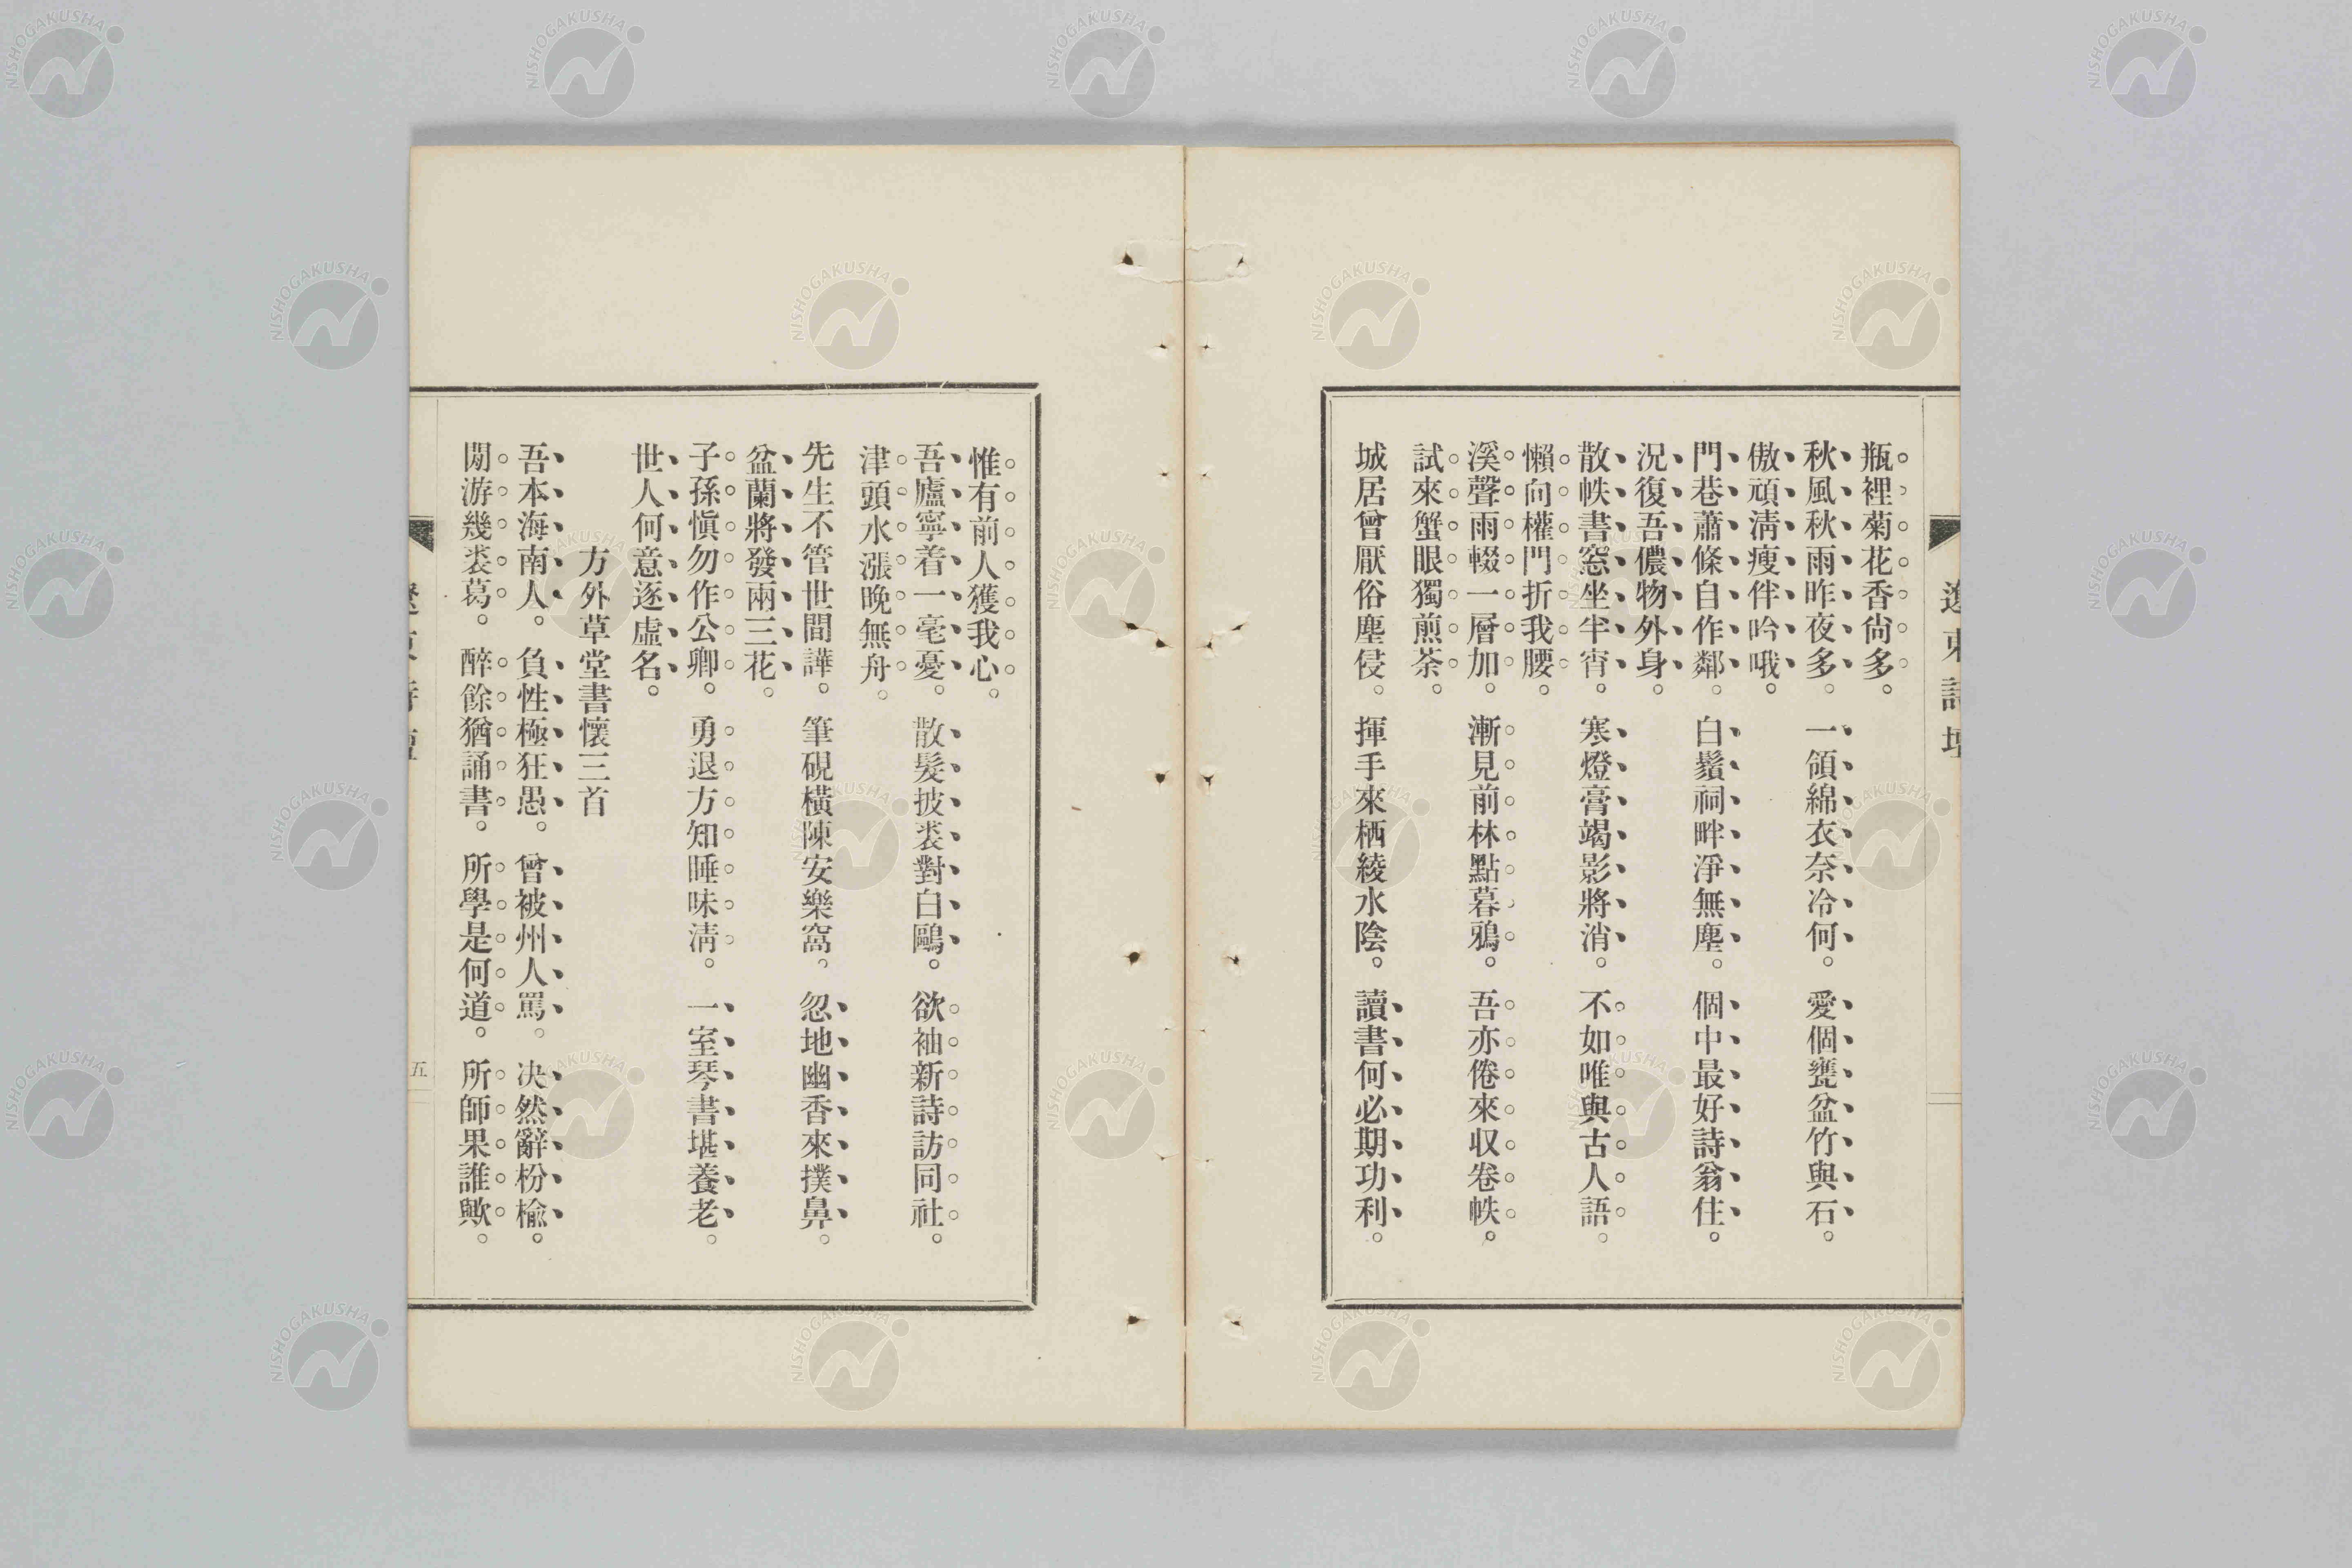 瓶裡菊花香尙多。
秋風秋雨昨夜多。一領綿衣奈冷何。愛個甕盆竹與石。
傲頑淸瘦伴吟哦。
門巷蕭條自作鄰。白鬚祠畔淨無塵。個中最好詩翁住。
況復吾儂物外身。
散帙書窓坐半宵。寒燈膏竭影將消。不如唯與古人語。
懶向權門折我腰。
溪聲雨輟一層加。漸見前林點暮鴉。吾亦倦來収卷帙。
試來蟹眼獨煎茶。
城居曾厭俗塵侵。揮手來栖綾水陰。讀書何必期功利。
惟有前人獲我心。
吾廬寧着一毫憂。散髮披裘對白鷗。欲袖新詩訪同社。
津頭水漲晚無舟。
先生不管世間譁。筆硯橫陳安樂窩。忽地幽香來撲鼻。
盆蘭將發兩三花。
子孫愼勿作公卿。勇退方知睡味淸。一室琴書堪養老。
世人何意逐虛名。
方外草堂書懷三首
吾本海南人。負性極狂愚。曾被州人罵。決然辭枌楡。
閒游幾裘葛。醉餘猶誦書。所學是何道。所師果誰歟。
五
NISHOGAKUSHA